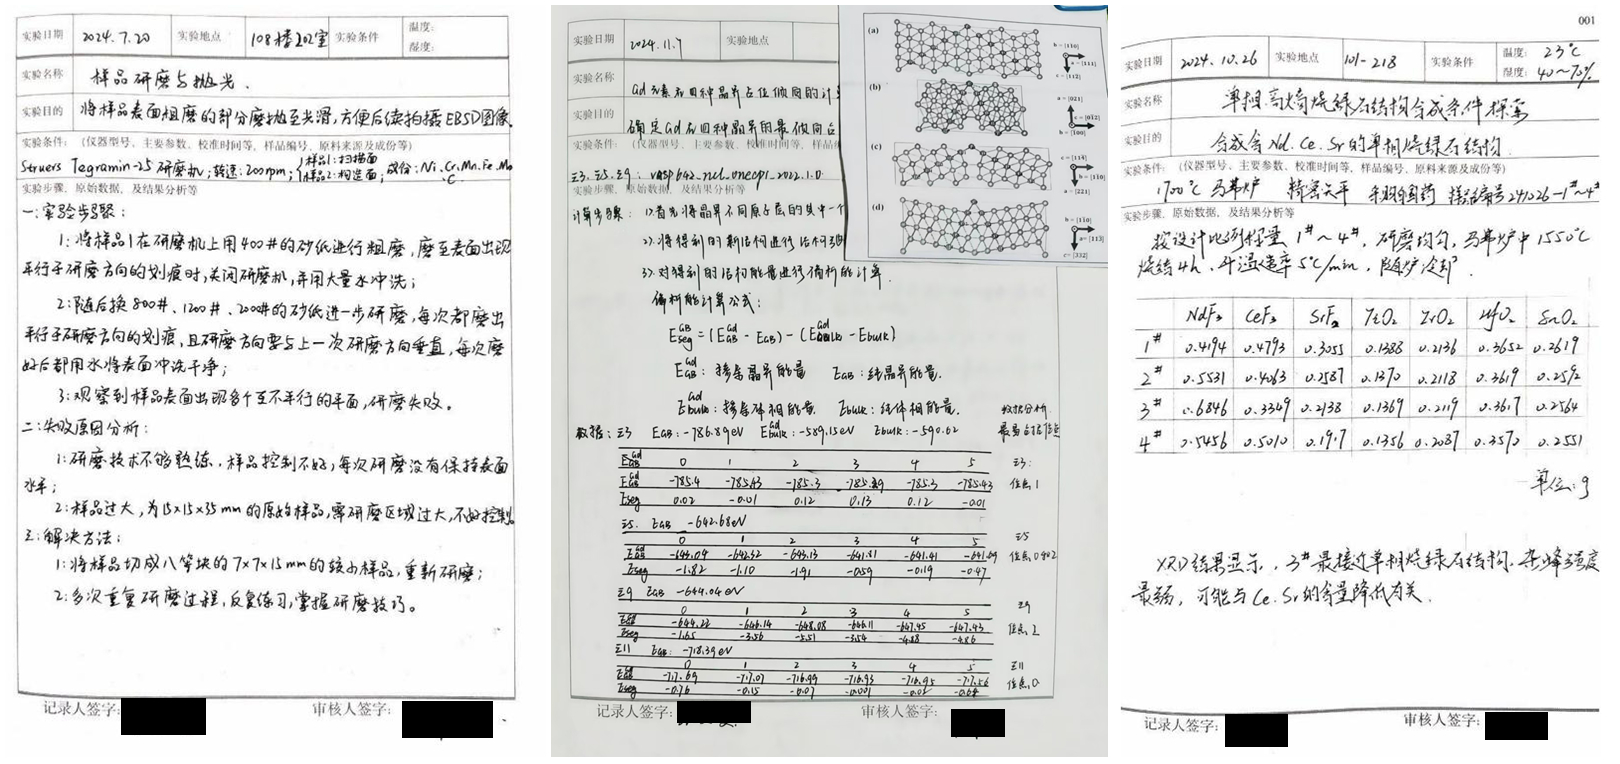 实验日期 2024.7.20 实验地点 108楼202室 实验条件 温度: 湿度:
实验名称 样品研磨与抛光.
实验目的 将样品表面粗磨的部分磨抛至光滑,方便后续拍摄EBSD图像.
实验条件: (仪器型号、主要参数、校准时间等,样品编号、原料来源及成份等)
Struers Tegramin-25 研磨机; 转速: 200rpm; 样品1: 扫描面 样品2: 构造面; 成份: Ni.Cr.Mn.Fe.Mo.C
实验步骤、原始数据、及结果分析等
一: 实验步骤:
1: 将样品1在研磨机上用400#的砂纸进行粗磨, 磨至表面出现
平行于研磨方向的划痕时, 关闭研磨机, 并用大量水冲洗;
2: 随后换800#、1200#、2000#的砂纸进一步研磨, 每次都磨出
平行于研磨方向的划痕, 且研磨方向要与上一次研磨方向垂直, 每次磨
好后都用水将表面冲洗干净;
3: 观察到样品表面出现多个互不平行的平面, 研磨失败。
二: 失败原因分析:
1: 研磨技术不够熟练, 样品控制不好, 每次研磨没有保持表面
水平;
2: 样品过大, 为15×15×35mm的原始样品, 需研磨区域过大, 不好控制。
三: 解决方法:
1: 将样品切成八等块的7×7×15mm的较小样品, 重新研磨;
2: 多次重复研磨过程, 反复练习, 掌握研磨技巧。
记录人签字: 审核人签字:
实验日期 2024.11.7 实验地点
实验名称 Gd元素在四种晶界占位倾向的计算
实验目的 确定Gd在四种晶界的最倾向占
实验条件: (仪器型号、主要参数、校准时间等,样品编
Σ3. Σ5. Σ9: vasp642.ncl.oneapi-2022.1.0
实验步骤、原始数据、及结果分析等
计算步骤: 1). 首先将晶界不同原子层的其中一个
2). 将得到的新结构进行结构弛
3). 对得到的结构能量进行偏析能计算.
偏析能计算公式:
E seg GB = (E GB Gd - E GB) - (E bulk Gd - E bulk)
E GB Gd: 掺杂晶界能量 E GB: 纯晶界能量.
E bulk Gd: 掺杂体相能量 E bulk: 纯体相能量.
数据分析.
数据: Σ3 E GB: -786.89eV E bulk Gd: -589.15eV E bulk: -590.62 最易占据位点
E GB Gd 0 1 2 3 4 5 Σ3:
E GB Gd -785.4 -785.43 -785.3 -785.29 -785.3 -785.43 位点1
E seg 0.02 -0.01 0.12 0.13 0.12 -0.01
Σ5. E GB -642.68eV
0 1 2 3 4 5 Σ5
E GB Gd -643.04 -642.32 -643.13 -641.81 -641.41 -641.69 位点0和2
E seg -1.82 -1.10 -1.91 -0.59 -0.19 -0.47
Σ9 E GB -644.04eV
0 1 2 3 4 5 Σ9
E GB Gd -644.22 -646.14 -648.08 -646.11 -647.45 -647.43 位点2
E seg -1.65 -3.56 -5.51 -3.54 -4.88 -4.86
Σ11 E GB: -718.39eV
0 1 2 3 4 5 Σ11
E GB Gd -717.69 -717.07 -716.99 -716.93 -716.95 -717.56 位点0
E seg -0.76 -0.15 -0.07 -0.001 -0.02 -0.64
记录人签字: 审核人签字:
(a)
b = [1̄10]
a = [111]
c = [112̄]
(b)
a = [021]
c = [01̄2]
b = [1̄00]
(c)
c = [11̄4̄]
b = [1̄10]
(d)
b = [1̄10]
a = [113̄]
c = [332]
001
实验日期 2024.10.26 实验地点 101-218 实验条件 温度: 23℃ 湿度: 40~70%
实验名称 单相高熵烧绿石结构合成条件探索
实验目的 合成含Nd.Ce.Sr的单相烧绿石结构.
实验条件: (仪器型号、主要参数、校准时间等,样品编号、原料来源及成份等)
1700℃马弗炉 精密天平 样品编号241026-1#~4#
实验步骤、原始数据、及结果分析等
按设计比例称量1#~4#, 研磨均匀, 马弗炉中1550℃
烧结4h, 升温速率5℃/min, 随炉冷却.
NdF₃ CeF₃ SrF₂ TiO₂ ZrO₂ HfO₂ SnO₂
1# 0.4194 0.4793 0.3055 0.1388 0.2136 0.3652 0.2619
2# 0.5531 0.4063 0.2587 0.1370 0.2118 0.3619 0.2592
3# 0.6846 0.3349 0.2138 0.1369 0.2119 0.3617 0.2564
4# 0.5456 0.5010 0.1917 0.1356 0.2087 0.3570 0.2551
单位: g
XRD结果显示, 3#最接近单相烧绿石结构. 杂峰强度
最弱, 可能与Ce.Sr的含量降低有关.
记录人签字: 审核人签字: